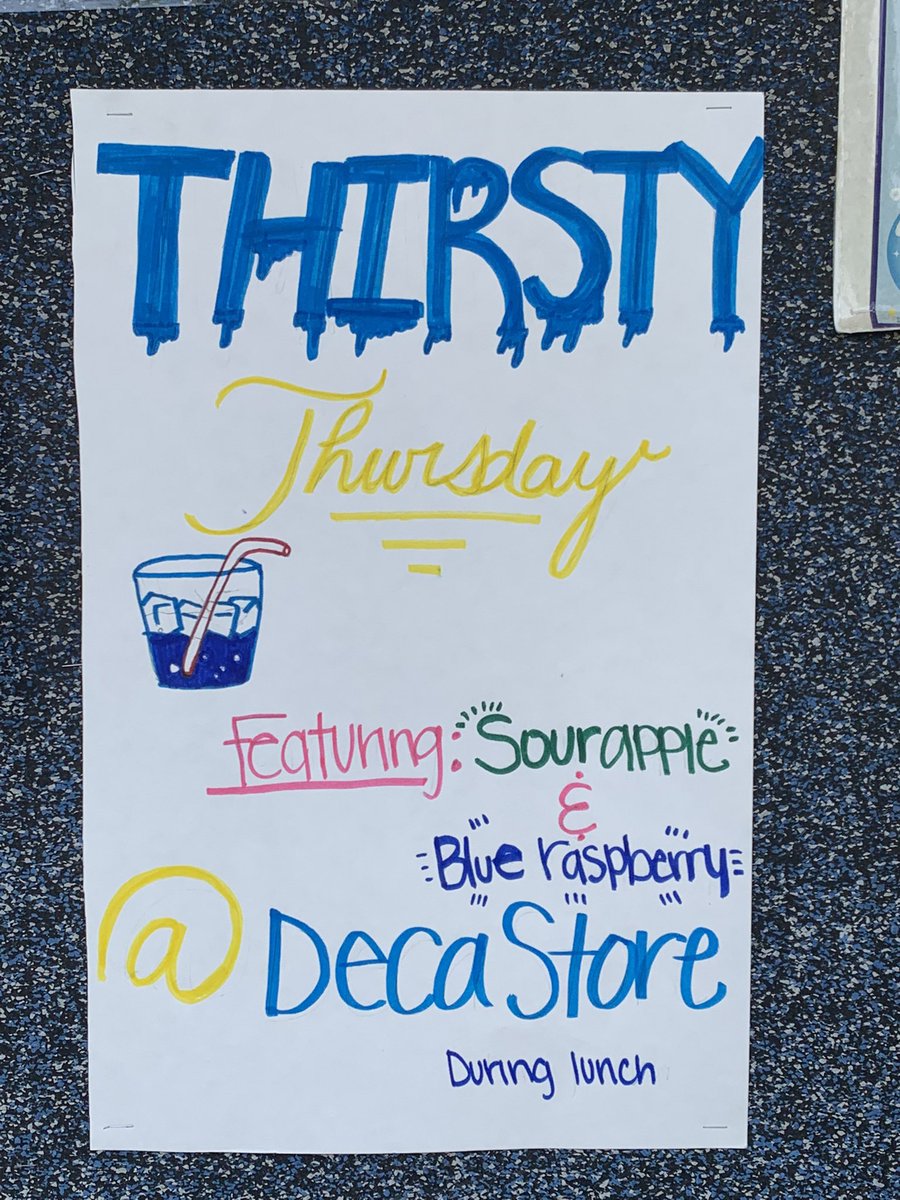 THIRSTY
Thursday
Featuring: Sour apple
&
Blue raspberry
@ Deca Store
During lunch